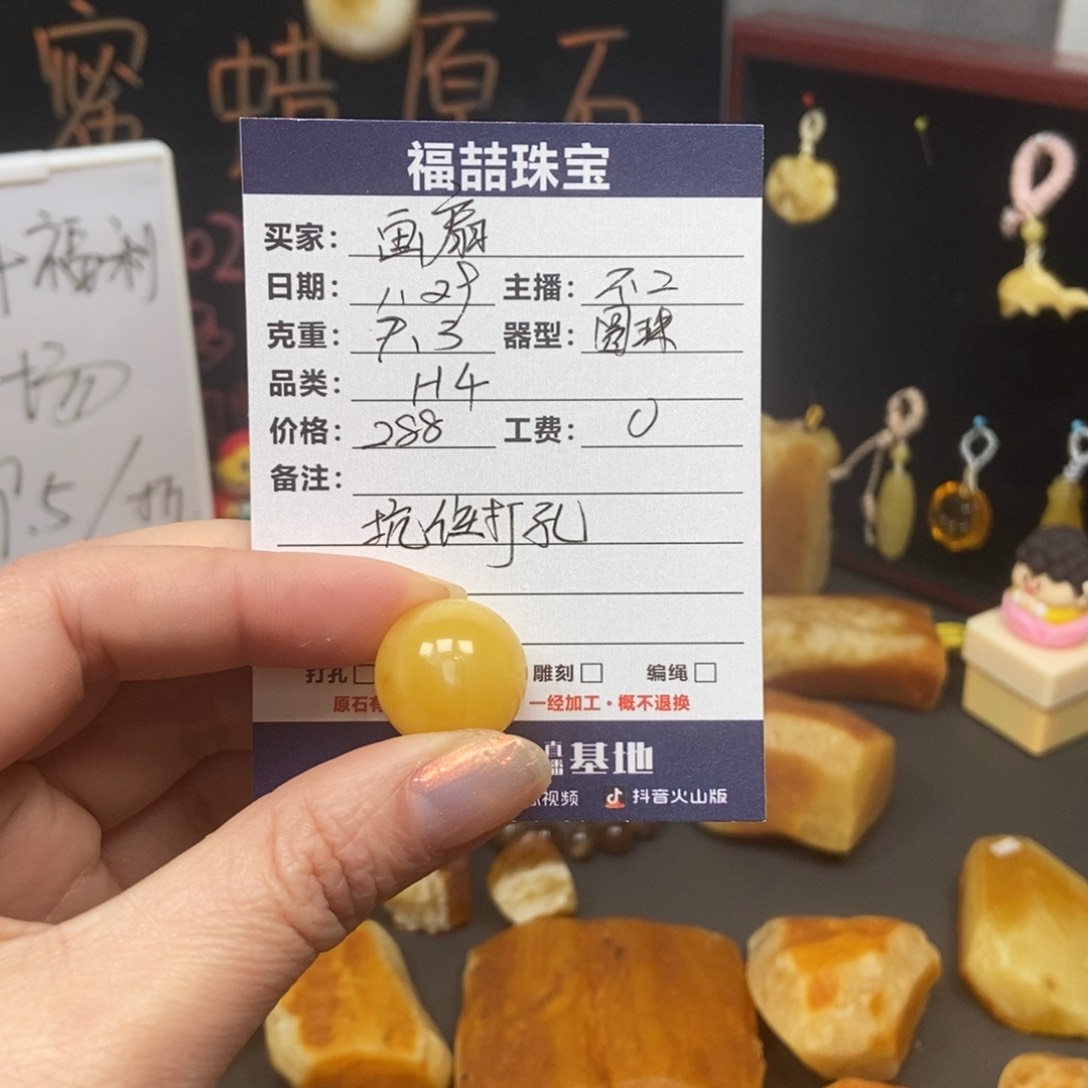 蜜蜡原石
福利
场
.5/
福喆珠宝
买家： 画扇
日期： 1.29 主播： 不二
克重： 7.3 器型： 圆珠
品类： H4
价格： 288 工费： 0
备注：
坑位打孔
打孔 雕刻 编绳
原石有 一经加工·概不退换
直播基地
视频 抖音火山版